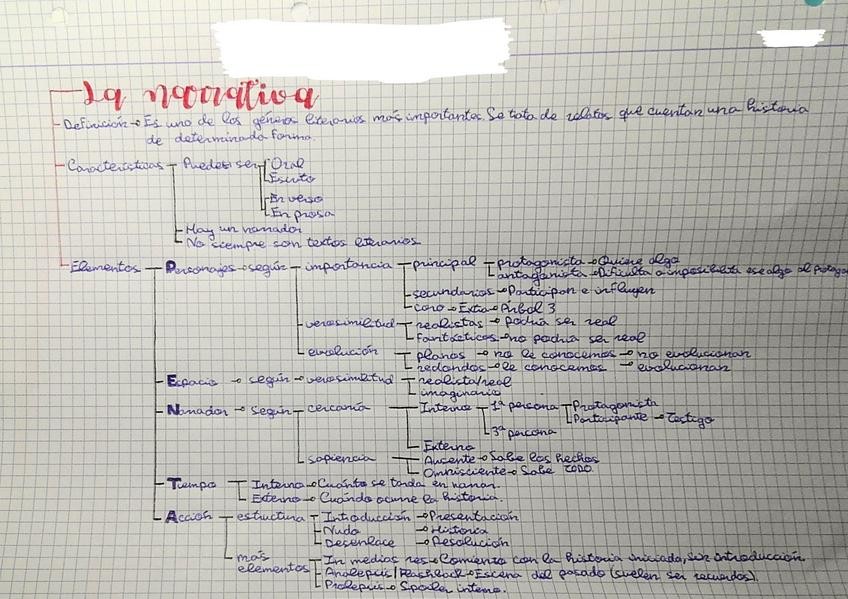 La narrativa
Definición → Es uno de los géneros literarios más importantes. Se trata de relatos que cuentan una historia
de determinada forma.
Características Puede ser Oral
Escrito
En verso
En prosa
Hay un narrador
No siempre son textos literarios
Elementos Personajes → según importancia principal protagonista → Quiere algo
antagonista → Dificulta o imposibilita ese algo al protago
secundarios → Participan e influyen
coro → Extra → Árbol 3
verosimilitud realistas → podría ser real
fantásticos → no podría ser real
evolución planos → no le conocemos → no evolucionan
redondos → le conocemos → evolucionan
Espacio → según → verosimilitud realista/real
imaginario
Narrador → según cercanía Interno 1ª persona Protagonista
Participante → Testigo
3ª persona
Externo
sapiencia Aucente → Sabe los hechos
Omnisciente → Sabe TODO.
Tiempo Interno → Cuánto se tarda en narrar.
Externo → Cuándo ocurre la historia.
Acción estructura Introducción → Presentación
Nudo → Historia
Desenlace → Resolución
más
elementos In medias res → Comienza con la historia iniciada, sin introducción.
Analepsis/Flashback → Escena del pasado (suelen ser recuerdos).
Prolepsis → Spoiler interno.